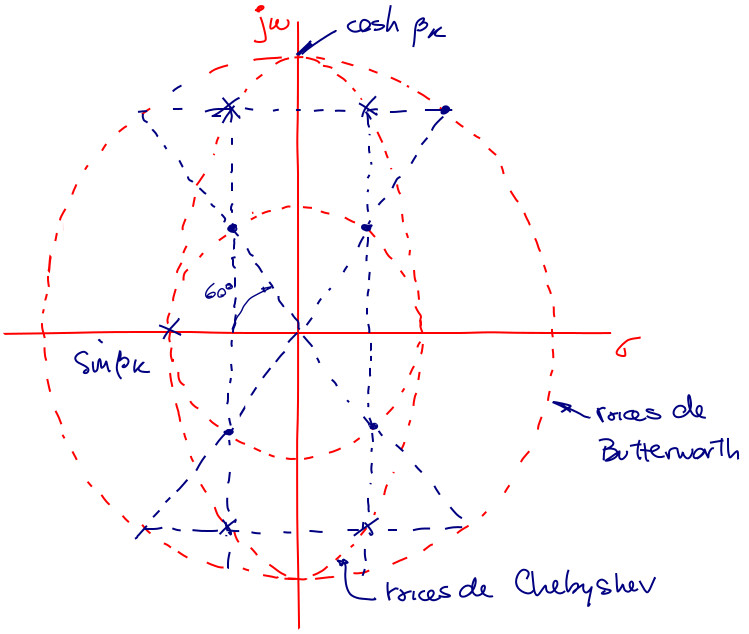 jω
cosh βκ
60°
σ
Sinβκ
raices de
Butterworth
raices de Chebyshev